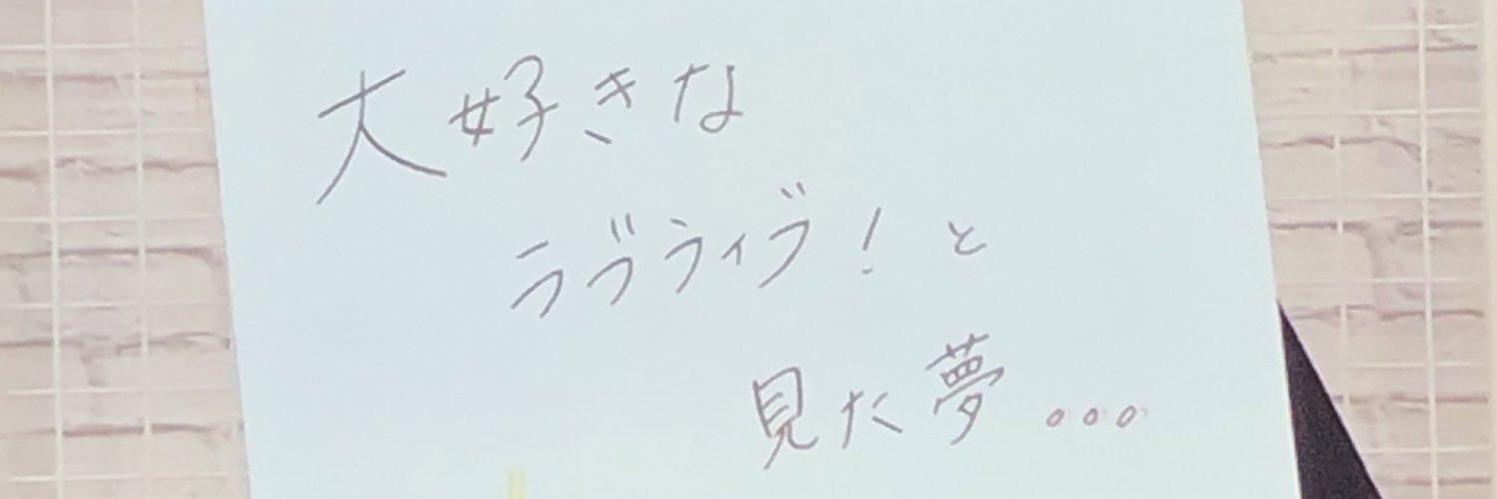 大好きな
ラブライブ！と
見た夢...